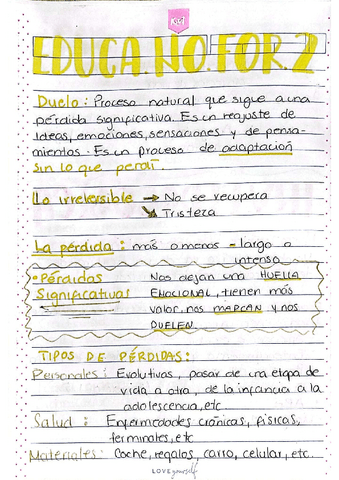 EDUCA.NO.FOR.2
Duelo: Proceso natural que sigue a una
pérdida significativa. Es un reajuste de
ideas, emociones, sensaciones y de pensa-
mientos. Es un proceso de adaptación
sin lo que perdí.
Lo irreversible → No se recupera
↘ Tristeza
La pérdida: más o menos - largo o
intenso
•Pérdidas Nos dejan una HUELLA
Significativas EMOCIONAL, tienen más
valor, nos MARCAN y nos
DUELEN.
TIPOS DE PÉRDIDAS:
Personales: Evolutivas, pasar de una etapa de
vida a otra, de la infancia a la
adolescencia, etc
Salud: Enfermedades crónicas, físicas,
terminales, etc
Materiales: Coche, regalos, carro, celular, etc.
LOVE yourself